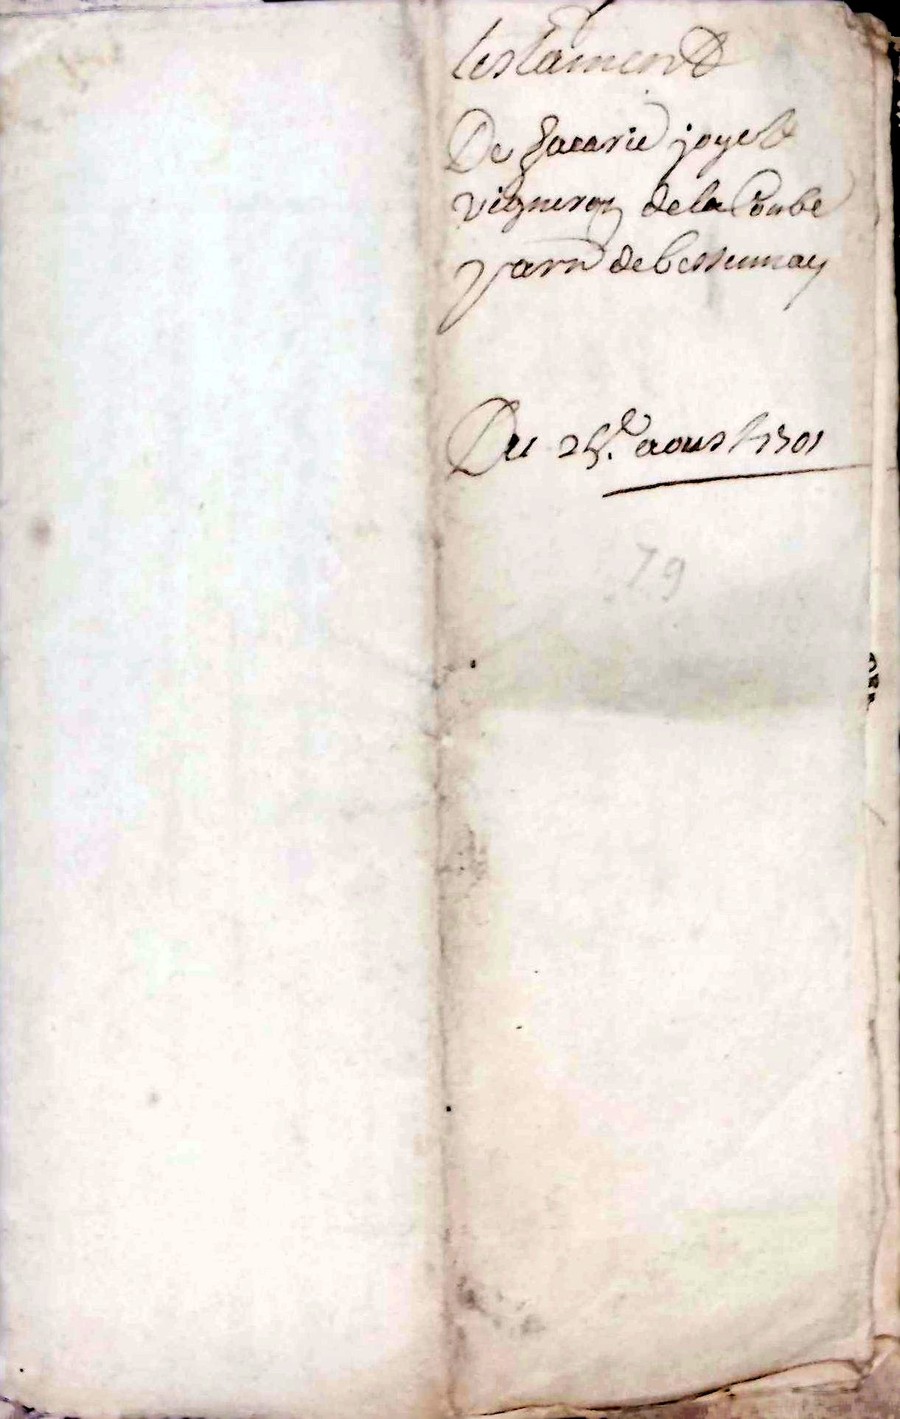 testament
De Zacarie joyet
vigneron de la Combe
parr de bessenay
Du 25.e aoust 1701
79